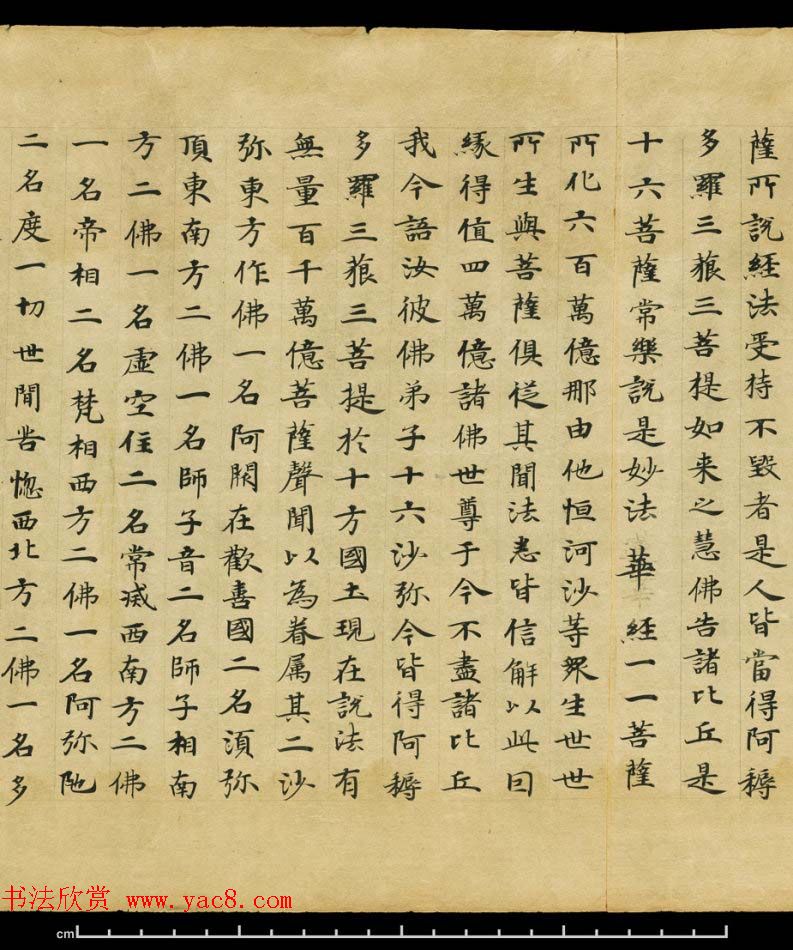 薩所說經法受持不毀者是人皆當得阿耨
多羅三藐三菩提如来之慧佛告諸比丘是
十六菩薩常樂說是妙法華經一一菩薩
所化六百萬億那由他恒河沙等眾生世世
所生與菩薩俱從其聞法悉皆信解以此因
緣得值四萬億諸佛世尊于今不盡諸比丘
我今語汝彼佛弟子十六沙弥今皆得阿耨
多羅三藐三菩提於十方國土現在說法有
無量百千萬億菩薩聲聞以為眷属其二沙
弥東方作佛一名阿閦在歡喜國二名須弥
頂東南方二佛一名師子音二名師子相南
方二佛一名虛空住二名常滅西南方二佛
一名帝相二名梵相西方二佛一名阿弥陁
二名度一切世間苦惱西北方二佛一名多
书法欣赏 www.yac8.com
cm